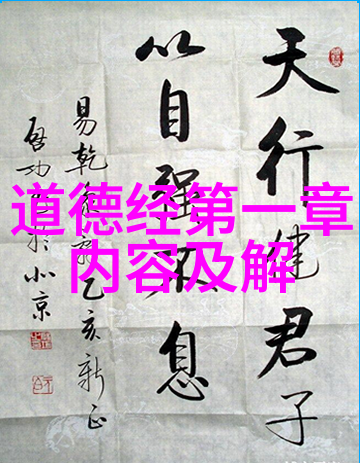 天行健君子
以自强不息
易乾乙亥新正
启功于北京
道德经第一章
内容及解